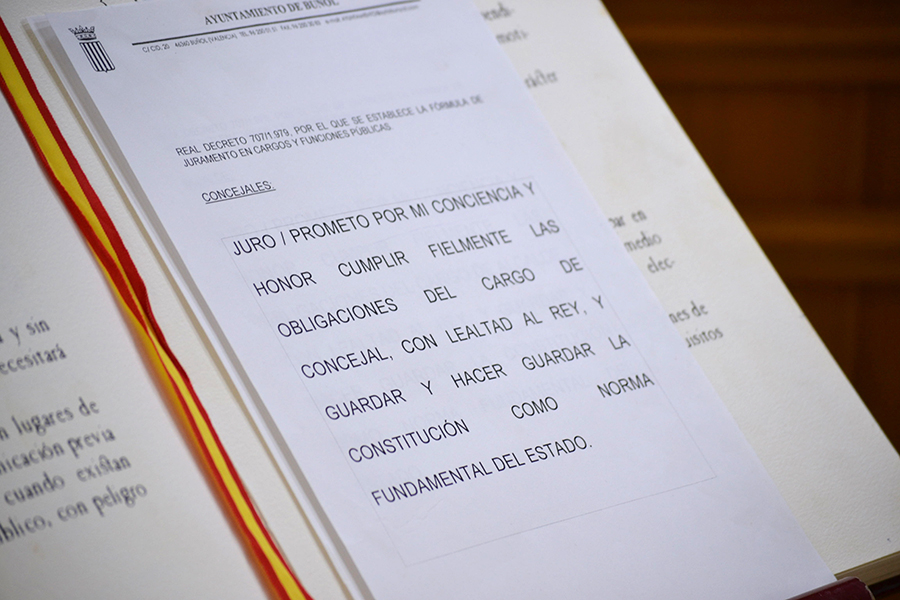 AYUNTAMIENTO DE BUÑOL
REAL DECRETO 707/1.979, POR EL QUE SE ESTABLECE LA FÓRMULA DE
JURAMENTO EN CARGOS Y FUNCIONES PÚBLICAS.
CONCEJALES:
JURO / PROMETO POR MI CONCIENCIA Y
HONOR CUMPLIR FIELMENTE LAS
OBLIGACIONES DEL CARGO DE
CONCEJAL, CON LEALTAD AL REY, Y
GUARDAR Y HACER GUARDAR LA
CONSTITUCIÓN COMO NORMA
FUNDAMENTAL DEL ESTADO.
a y sin
ecesitará
n lugares de
nicación previa
cuando existan
blico, con peligro
en
medio
elec-
nes de
uisitos